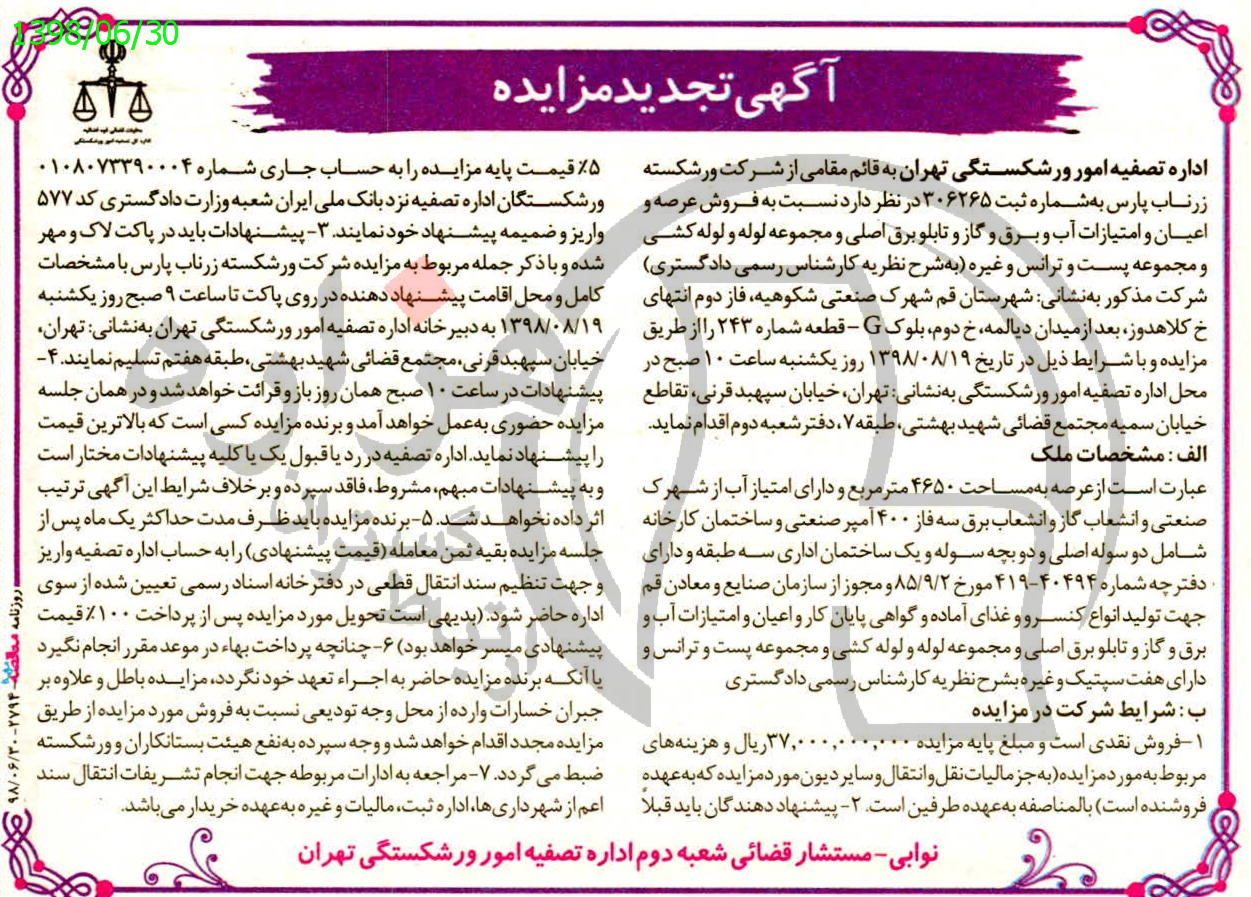 1398/06/30
آگهی تجدید مزایده
معاونت قضائی قوه قضائیه
اداره کل تصفیه امور ورشکستگی
اداره تصفیه امور ورشکستگی تهران به قائم مقامی از شرکت ورشکسته
زرناب پارس به‌شماره ثبت ۳۰۶۲۶۵ در نظر دارد نسبت به فروش عرصه و
اعیان و امتیازات آب و برق و گاز و تابلو برق اصلی و مجموعه لوله و لوله کشی
و مجموعه پست و ترانس و غیره (به‌شرح نظریه کارشناس رسمی دادگستری)
شرکت مذکور به‌نشانی: شهرستان قم شهرک صنعتی شکوهیه، فاز دوم انتهای
خ کلاهدوز، بعد از میدان دیالمه، خ دوم، بلوک G – قطعه شماره ۲۴۳ را از طریق
مزایده و با شرایط ذیل در تاریخ ۱۳۹۸/۰۸/۱۹ روز یکشنبه ساعت ۱۰ صبح در
محل اداره تصفیه امور ورشکستگی به‌نشانی: تهران، خیابان سپهبد قرنی، تقاطع
خیابان سمیه مجتمع قضائی شهید بهشتی، طبقه ۷، دفتر شعبه دوم اقدام نماید.
الف : مشخصات ملک
عبارت است از عرصه به‌مساحت ۴۶۵۰ مترمربع و دارای امتیاز آب از شهرک
صنعتی و انشعاب گاز و انشعاب برق سه فاز ۴۰۰ آمپر صنعتی و ساختمان کارخانه
شامل دو سوله اصلی و دو بچه سوله و یک ساختمان اداری سه طبقه و دارای
دفترچه شماره ۴۰۴۹۴-۴۱۹ مورخ ۸۵/۹/۲ و مجوز از سازمان صنایع و معادن قم
جهت تولید انواع کنسرو و غذای آماده و گواهی پایان کار و اعیان و امتیازات آب و
برق و گاز و تابلو برق اصلی و مجموعه لوله و لوله کشی و مجموعه پست و ترانس و
دارای هفت سپتیک و غیره بشرح نظریه کارشناس رسمی دادگستری
ب : شرایط شرکت در مزایده
۱–فروش نقدی است و مبلغ پایه مزایده ۳۷,۰۰۰,۰۰۰,۰۰۰ریال و هزینه‌های
مربوط به مورد مزایده(به جز مالیات نقل و انتقال و سایر دیون مورد مزایده که به عهده
فروشنده است) بالمناصفه به‌عهده طرفین است. ۲- پیشنهاد دهندگان باید قبلاً
۵٪ قیمت پایه مزایده را به حساب جاری شماره ۰۱۰۸۰۷۳۳۹۰۰۰۴
ورشکستگان اداره تصفیه نزد بانک ملی ایران شعبه وزارت دادگستری کد ۵۷۷
واریز و ضمیمه پیشنهاد خود نمایند. ۳- پیشنهادات باید در پاکت لاک و مهر
شده و با ذکر جمله مربوط به مزایده شرکت ورشکسته زرناب پارس با مشخصات
کامل و محل اقامت پیشنهاد دهنده در روی پاکت تا ساعت ۹ صبح روز یکشنبه
۱۳۹۸/۰۸/۱۹ به دبیرخانه اداره تصفیه امور ورشکستگی تهران به‌نشانی: تهران،
خیابان سپهبد قرنی، مجتمع قضائی شهید بهشتی، طبقه هفتم تسلیم نمایند. ۴-
پیشنهادات در ساعت ۱۰ صبح همان روز باز و قرائت خواهد شد و در همان جلسه
مزایده حضوری به‌عمل خواهد آمد و برنده مزایده کسی است که بالاترین قیمت
را پیشنهاد نماید. اداره تصفیه در رد یا قبول یک یا کلیه پیشنهادات مختار است
و به پیشنهادات مبهم، مشروط، فاقد سپرده و برخلاف شرایط این آگهی ترتیب
اثر داده نخواهد شد. ۵- برنده مزایده باید ظرف مدت حداکثر یک ماه پس از
جلسه مزایده بقیه ثمن معامله (قیمت پیشنهادی) را به حساب اداره تصفیه واریز
و جهت تنظیم سند انتقال قطعی در دفترخانه اسناد رسمی تعیین شده از سوی
اداره حاضر شود. (بدیهی است تحویل مورد مزایده پس از پرداخت ۱۰۰٪ قیمت
پیشنهادی میسر خواهد بود) ۶- چنانچه پرداخت بهاء در موعد مقرر انجام نگیرد
یا آنکه برنده مزایده حاضر به اجراء تعهد خود نگردد، مزایده باطل و علاوه بر
جبران خسارات وارده از محل وجه تودیعی نسبت به فروش مورد مزایده از طریق
مزایده مجدد اقدام خواهد شد و وجه سپرده به‌نفع هیئت بستانکاران و ورشکسته
ضبط می گردد. ۷- مراجعه به ادارات مربوطه جهت انجام تشریفات انتقال سند
اعم از شهرداری‌ها، اداره ثبت، مالیات و غیره به‌عهده خریدار می‌باشد.
نوابی – مستشار قضائی شعبه دوم اداره تصفیه امور ورشکستگی تهران
روزنامه مناقصه مزایده ۲۷۹۴ - ۹۸/۰۶/۳۰